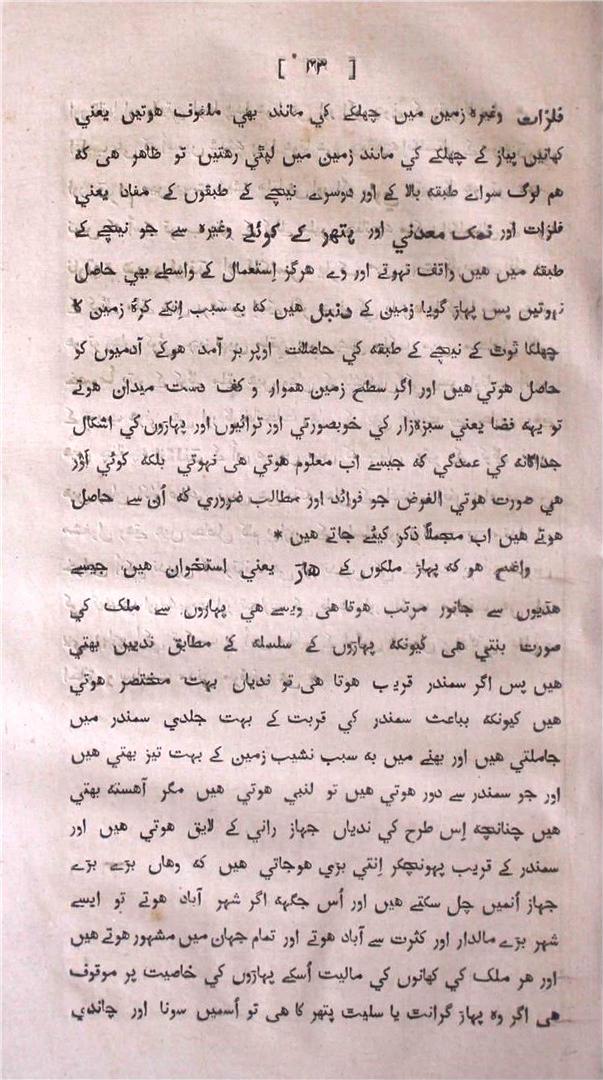 [ ۴۳ ]
فلزات وغیرہ زمین میں چھلکے کي مانند بھي ملفوف هوتیں یعني
کھانیں پیاز کے چھلکے کي مانند زمین میں لپٹي رهتیں تو ظاهر هی که
هم لوگ سواے طبقه بالا کے اور دوسرے نیچے کے طبقوں کے مفاد یعني
فلزات اور نمک معدني اور پتھر کے کوئلے وغیرہ سے جو نیچے کے
طبقه میں هیں واقف نہوتے اور وے هرگز اِستعمال کے واسطے بھي حاصل
نہوتیں پس پہاڑ گویا زمین کے دنبل هیں که به سبب اِنکے کرہ زمین کا
چھلکا ٹوٹ کے نیچے کے طبقه کي حاصلات اوپر بر آمد هوکے آدمیوں کو
حاصل هوتي هیں اور اگر سطح زمین هموار و کف دست میدان هوتے
تو یہه فضا یعني سبزہزار کي خوبصورتي اور ترائیوں اور پہاڑوں کي اشکال
جداگانه کي عمدگي که جیسے اب معلوم هوتي هی نہوتي بلکه کوئي اَوْر
هي صورت هوتي الغرض جو فوائد اور مطالب ضروري که اُن سے حاصل
هوتے هیں اب مجملاً ذکر کیئے جاتے هیں *
واضح هو که پہاڑ ملکوں کے هاڑ یعني استخوان هیں جیسے
هڈیوں سے جانور مرتب هوتا هی ویسے هي پہاڑوں سے ملک کي
صورت بنتي هی کیونکه پہاڑوں کے سلسله کے مطابق ندییں بہتي
هیں پس اگر سمندر قریب هوتا هی تو ندیاں بہت مختصر هوتي
هیں کیونکه بباعث سمندر کي قربت کے بہت جلدي سمندر میں
جاملتي هیں اور بہنے میں به سبب نشیب زمین کے بہت تیز بہتي هیں
اور جو سمندر سے دور هوتي هیں تو لنبي هوتي هیں مگر آهسته بہتي
هیں چنانچه اِس طرح کي ندیاں جہاز راني کے لایق هوتي هیں اور
سمندر کے قریب پہونچکر اِتني بڑي هوجاتي هیں که وهاں بڑے بڑے
جہاز اُنمیں چل سکتے هیں اور اُس جگہه اگر شہر آباد هوتے تو ایسے
شہر بڑے مالدار اور کثرت سے آباد هوتے اور تمام جہان میں مشہور هوتے هیں
اور هر ملک کي کھانوں کي مالیت اُسکے پہاڑوں کي خاصیت پر موقوف
هی اگر وہ پہاڑ گرانت یا سلیت پتھر کا هی تو اُسمیں سونا اور چاندي